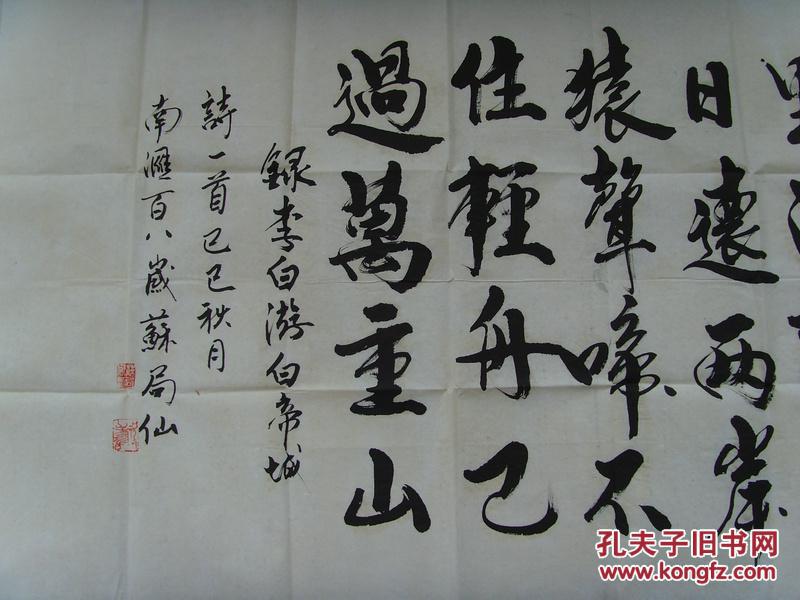 日還兩岸
猿聲啼不
住輕舟已
過萬重山
錄李白游白帝城
詩一首己巳秋月
南滙百八歲蘇局仙
孔夫子旧书网
www.kongfz.com